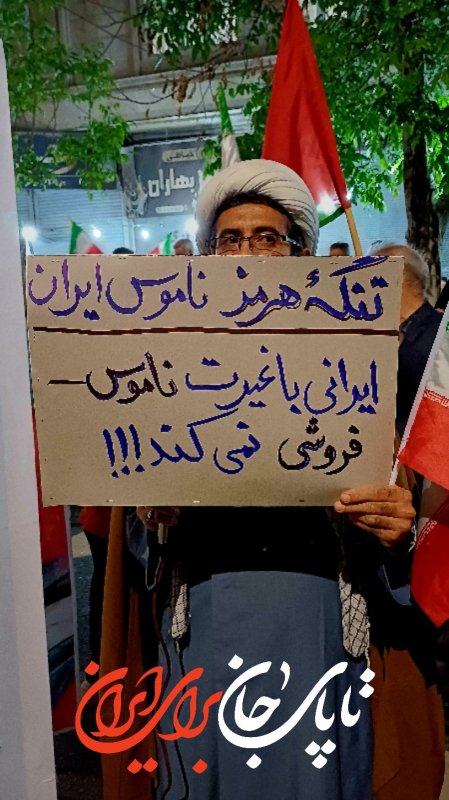 بهاران
تنگهٔ هرمز ناموس ایران
ایرانی باغیرت ناموس-
فروشی نمی کند!!!
تا پای جان برای ایران